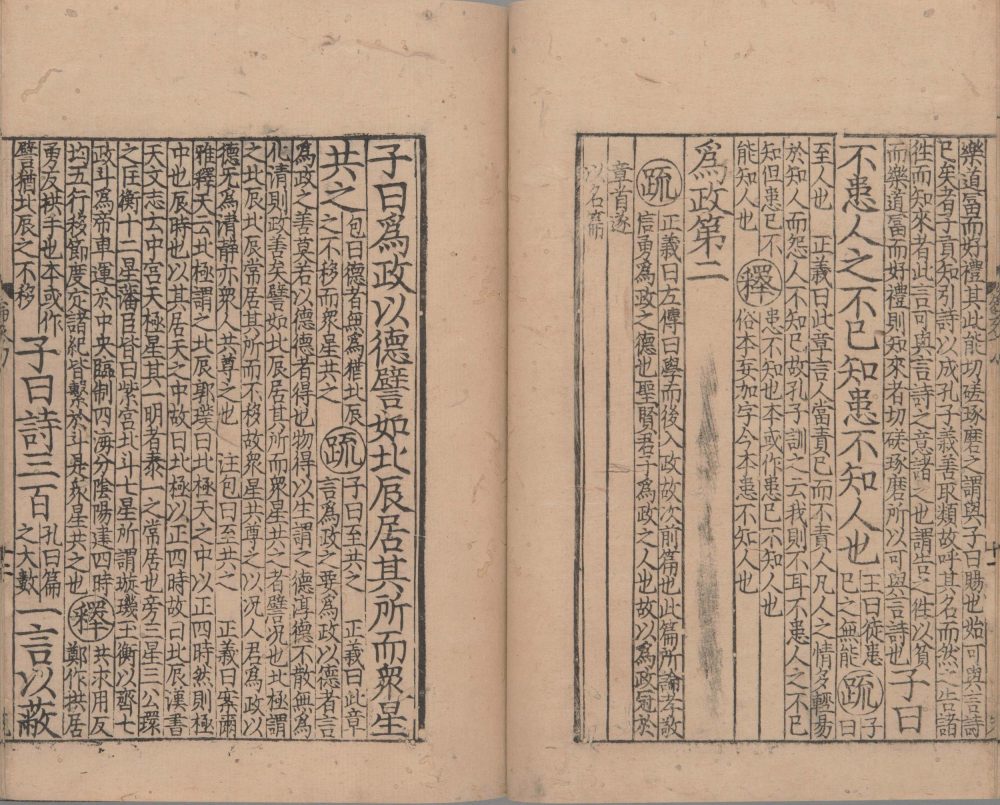 樂道富而好禮其此能切磋琢磨之謂與子曰賜也始可與言詩
已矣者子貢知引詩以成孔子義善取類故呼其名而然之告諸
徃而知來者此言可與言詩之意諸之也謂告之徃以貧
而樂道富而好禮則知來者切磋琢磨所以可與言詩也子曰
不患人之不已知患不知人也王曰徒患已之無能疏子曰
至人也 正義曰此章言人當責已而不責人凡人之情多輕易
於知人而怨人不知已故孔子訓之云我則不耳不患人之不已
知但患已不能知人也釋患不知也本或作患已不知人也俗本妄加字今本患不知人也
爲政第二
疏正義曰左傳曰學而後入政故次前篇也此篇所論孝敬
信勇爲政之德也聖賢君子爲政之人也故以爲政冠於
章首遂
以名篇
子曰爲政以德譬如北辰居其所而衆星
共之包曰德者無爲猶北辰之不移而衆星共之疏子曰至共之 正義曰此章言爲政之要爲政以德者言
爲政之善莫若以德德者得也物得以生謂之德淳德不散無爲
化清則政善矣譬如北辰居其所而衆星共之者譬況也北極謂
之北辰北辰常居其所而不移故衆星共尊之以况人君爲政以
德无爲清靜亦衆人共尊之也 注包曰至共之 正義曰案爾
雅釋天云北極謂之北辰郭璞曰北極天之中以正四時然則極
中也辰時也以其居天之中故曰北極以正四時故曰北辰漢書
天文志云中宮天極星其一明者泰一之常居也旁三星三公環
之匡衡十二星藩臣皆曰紫宮北斗七星所謂璇璣玉衡以齊七
政斗爲帝車運於中央臨制四海分陰陽建四時
均五行移節度定諸紀皆繫於斗是衆星共之也釋共求用反鄭作拱居
勇反拱手也本或作譬猶北辰之不移子曰詩三百孔曰篇之大數一言以蔽